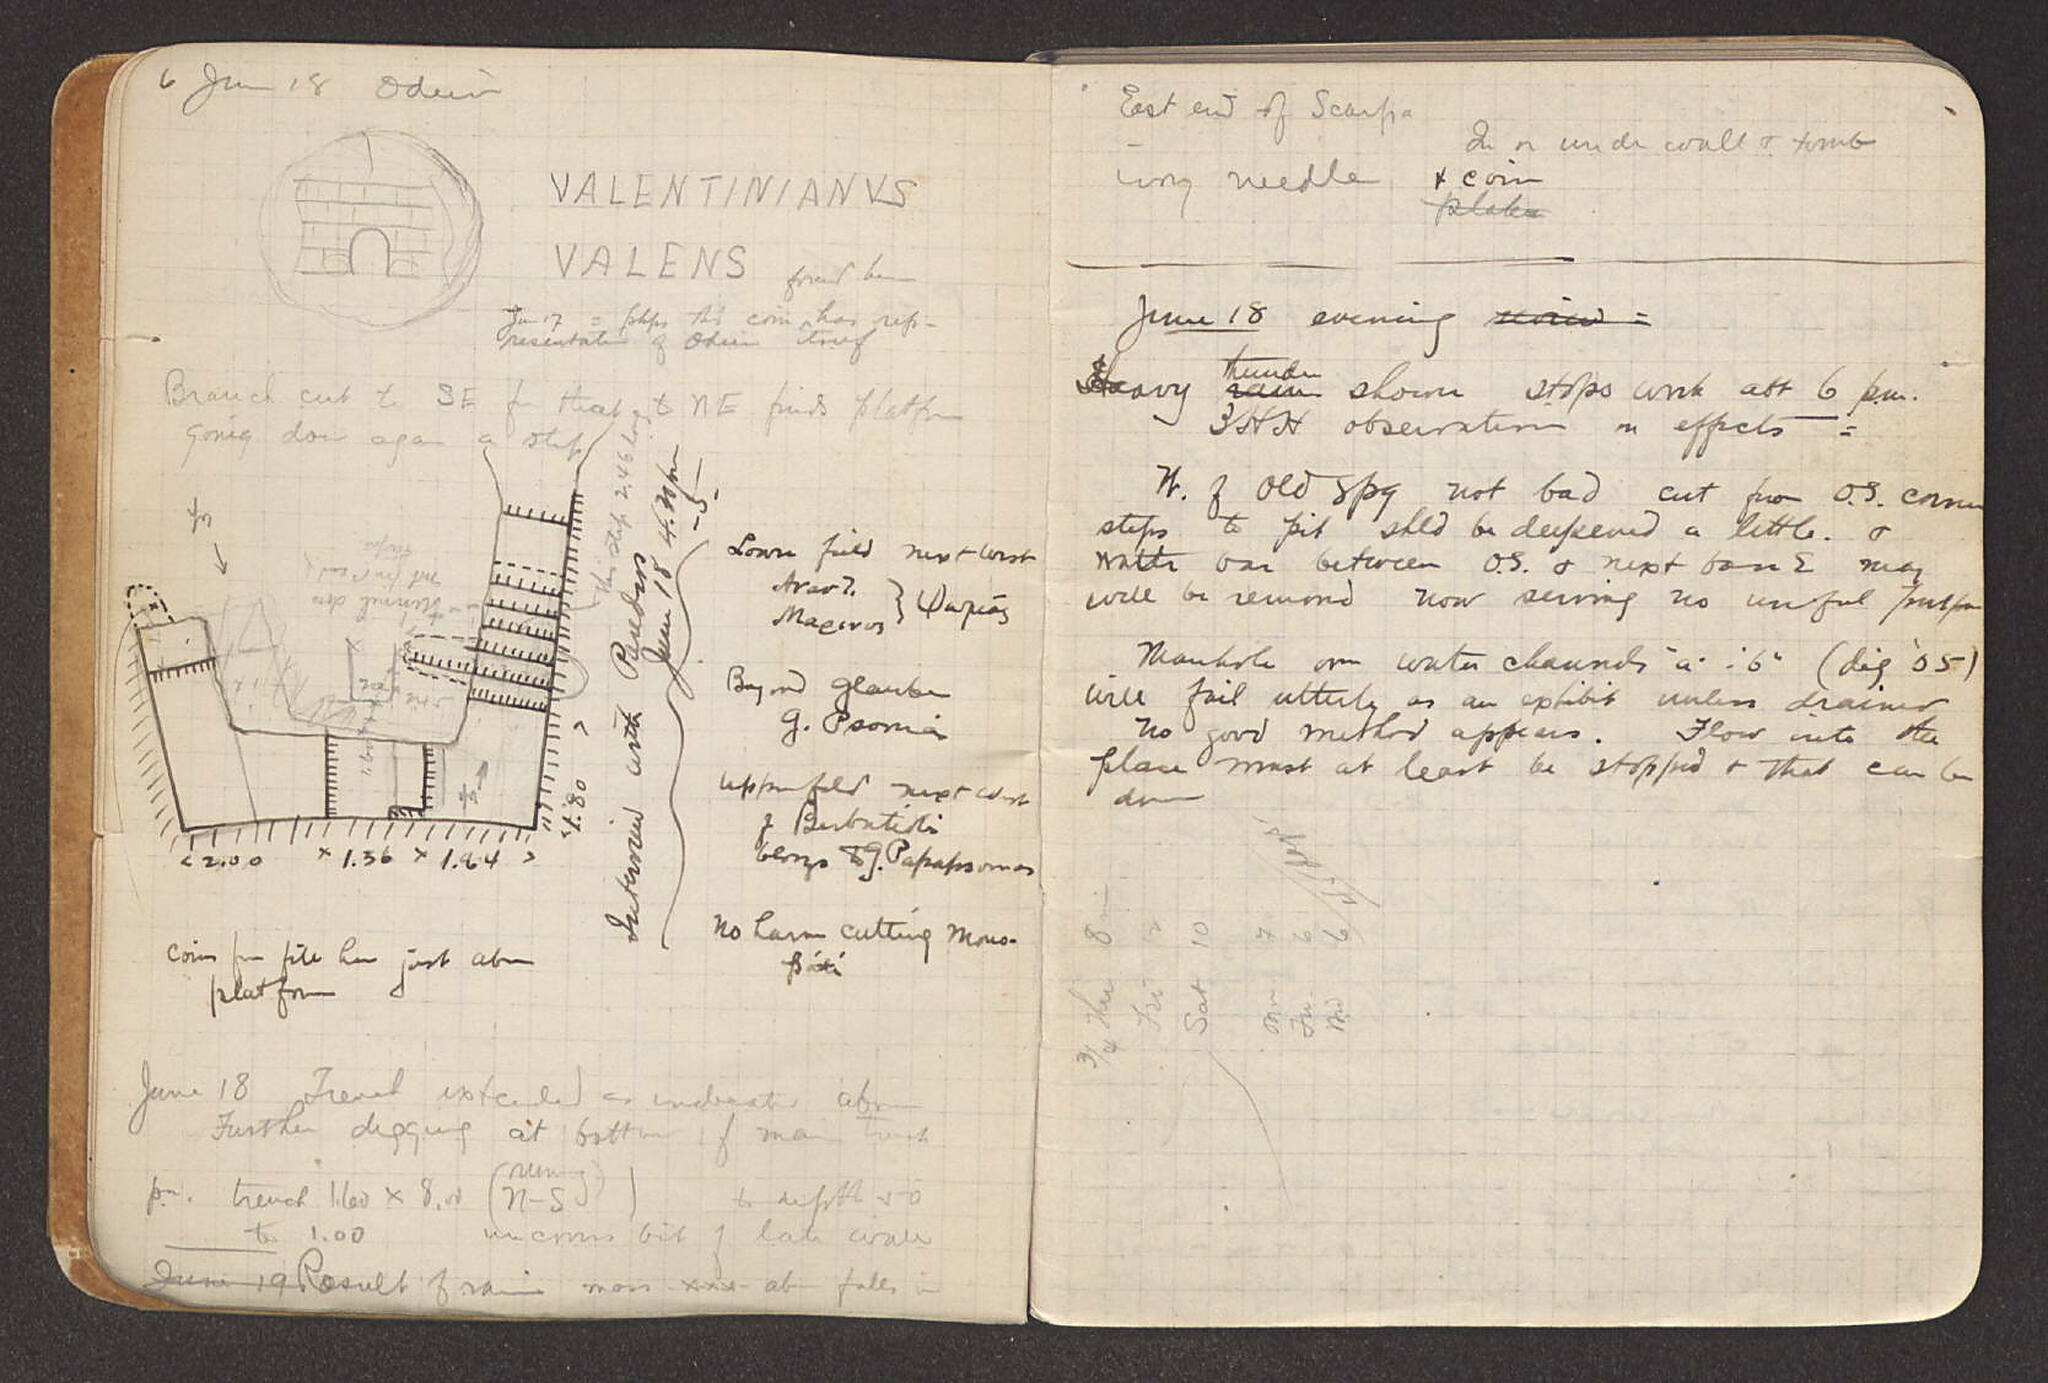 6 June 18 Odeion
VALENTINIANVS
VALENS found here
Jun 17 = phps this coin has rep-
resentation of Odeion itself
Branch cut to SE fr that to NE finds platform
going down again a step
this step 2.46 long
Interview with Paredaros
June 18 4.30 pm
-5-
Lower field next west
Mageiros
Beyond Glauke
G. Psomia
upper field next west
of Barbatioti
belongs to G. Papapsomas
No harm cutting mono-
pati
1.80
< 2.00 × 1.36 × 1.64 >
coins fm fill here just above
platform
June 18 Trench extended as indicated above
Further digging at bottom of main trench
pm. trench 1.60 × 8.00 (running N-S) to depth 50
to 1.00 uncovers bit of late wall
June 19 Result of rain mass xxx above falls in
East end of Scarpa
In or under wall & tomb
ivory needle + coin
June 18 evening
Heavy thunder rain shower stops work abt 6 p.m.
observations on effects =
W. of Old Spg not bad cut from O.S. corner
steps to pit shld be deepened a little. &
water bar between O.S. & next bar E may
well be removed now serving no useful purpose
Manhole over water channels "a" "b" (dig '05)
will fail utterly as an exhibit unless drained
No good method appears. Flow into the
place must at least be stopped & that can be
done
3/4 Thu 8
Fri
Sat 10
Mon 7
Tu 6
Wed 6